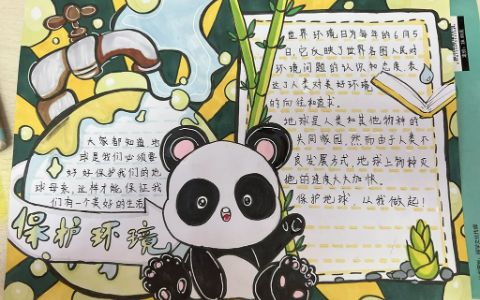 大家都知道地
球是我们必须要
好好保护我们的地
球母亲,这样才能保证我
们有一个美好的生活
保护环境
世界环境日为每年的6月5
日,它反映了世界各国人民对
环境问题的认识和态度,表
达了人类对美好环境
的向往和追求。
地球是人类和其他物种的
共同家园,然而由于人类不
良发展方式,地球上物种灭
绝的速度大大加快。
保护地球,从我做起!